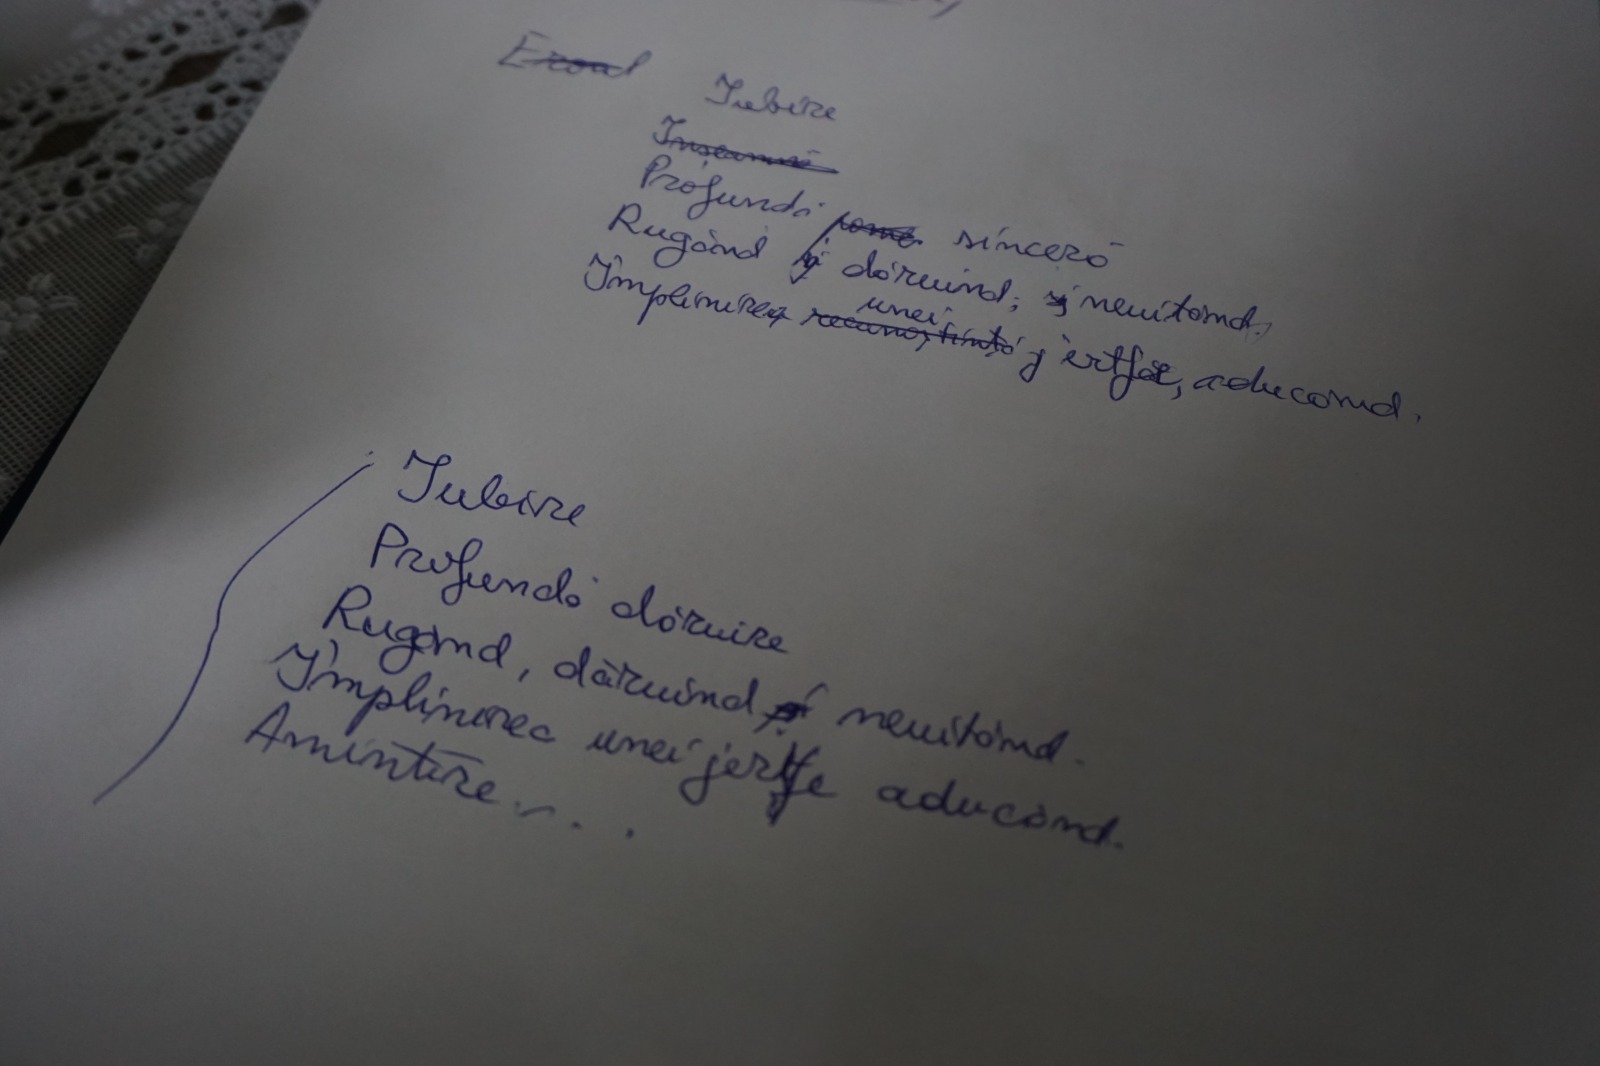 Erou
Iubire
Înseamnă
Profundă sinceră
Rugând și dăruind, și neuitând.
Împlinirea recunoștință unei jertfe, aducând.
Iubire
Profundă dăruire
Rugând, dăruind și neuitând.
Împlinirea unei jertfe aducând.
Amintire...